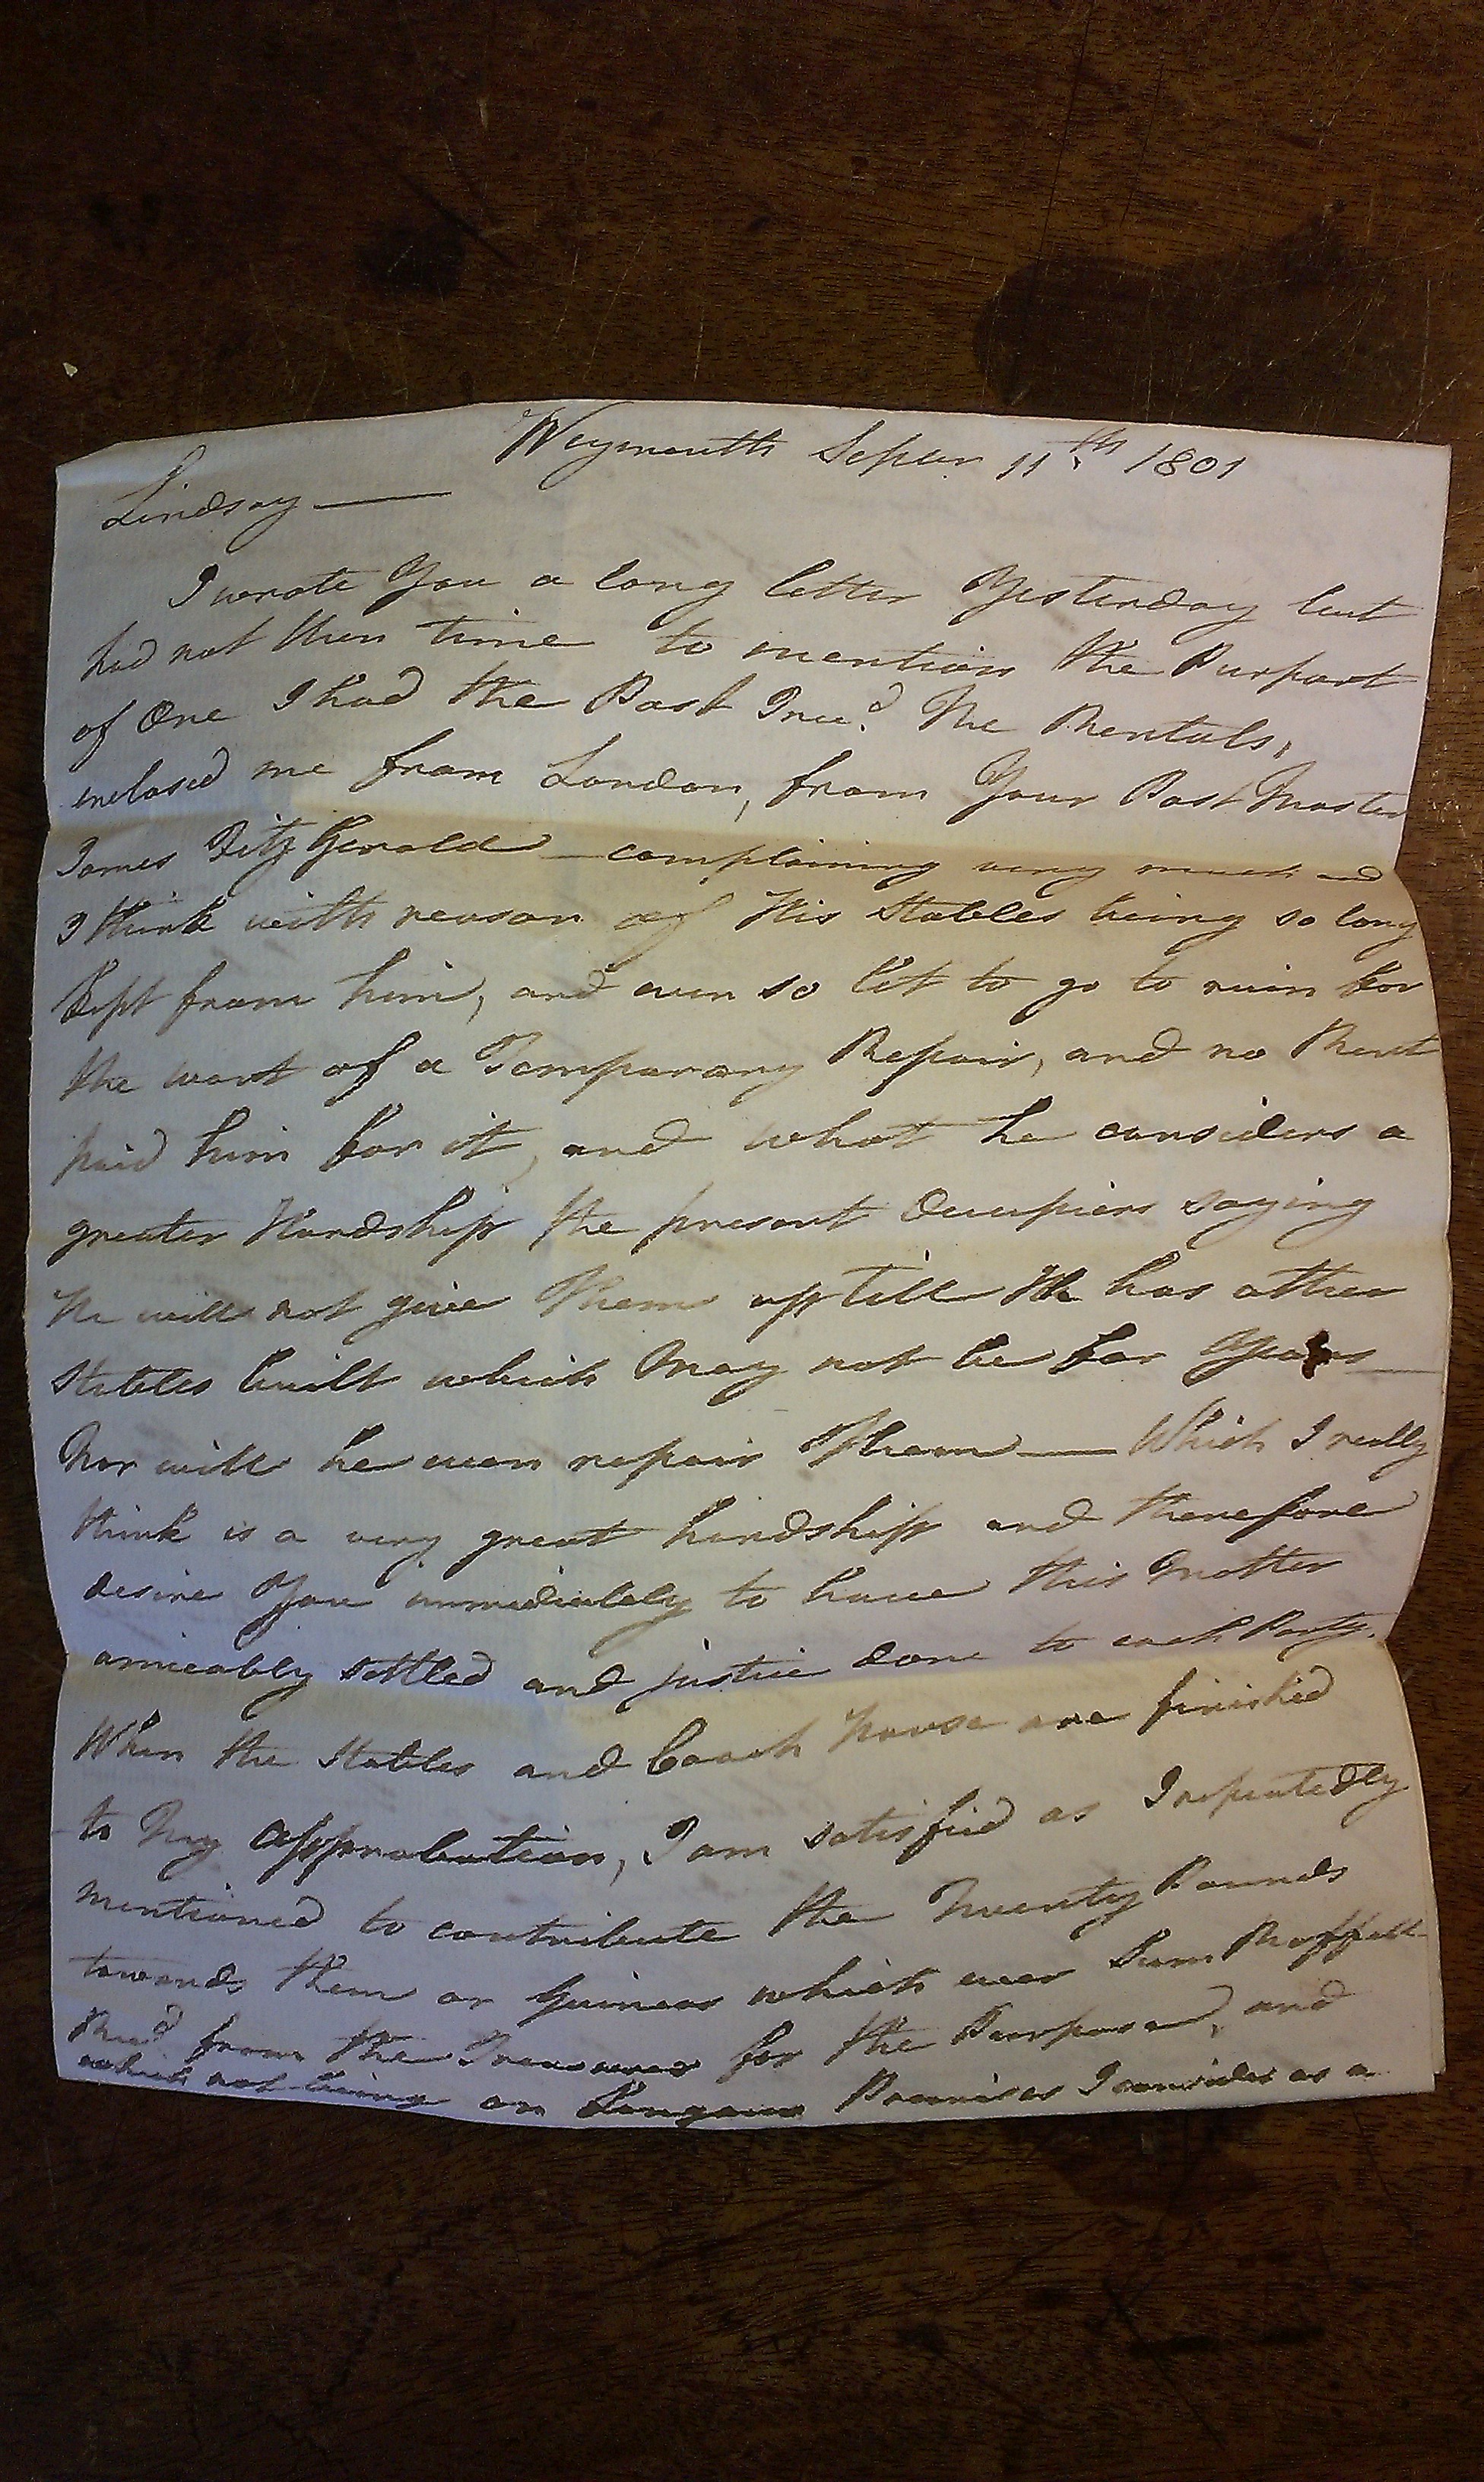 Weymouth Sepber 11th 1801
Lindsay —
I wrote You a long letter Yesterday but
had not then time to mention the Purport
of One I had the Post I recd. the Rentals,
inclosed me from London, from Your Post Master
James FitzGerald — complaining very much and
I think with reason of His Stables being so long
kept from him, and even so let to go to ruin for
the want of a Temporary Repair, and no Rent
paid him for it, and what he considers a
greater Hardship the present Occupiers saying
He will not give Them up till He has other
Stables built which May not be for Years —
Nor will he even repair Them — Which I really
think is a very great hardship and therefore
desire You immediately to have this Matter
amicably settled and justice done to each Party.
When the Stables and Coach house are finished
to My Approbation, I am satisfied as I repeatedly
mentioned to contribute the Twenty Pounds
towards them or Guineas which ever Sum
Recd from the Treasurer for the Purpose, and
which not being on Premises I consider as a